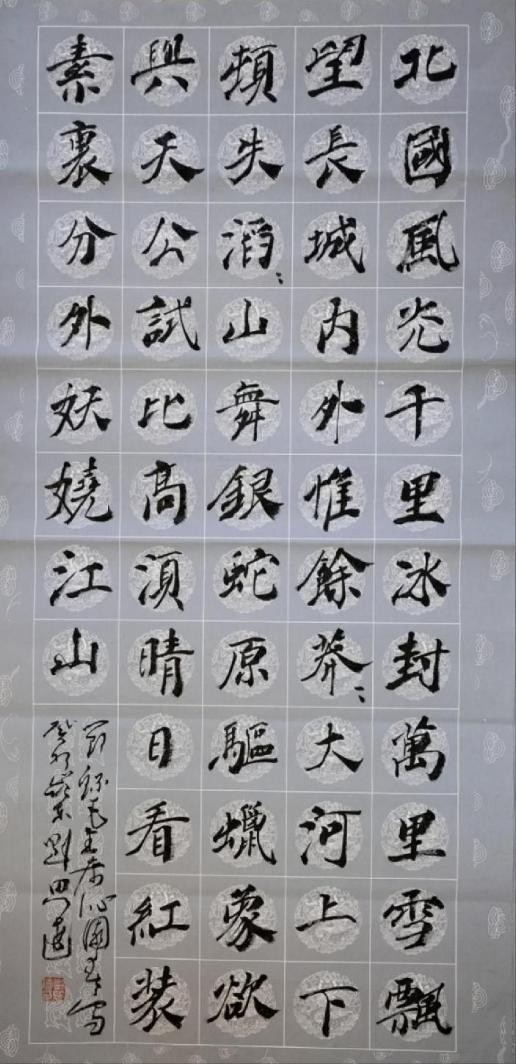 北國風光千里冰封萬里雪飄
望長城内外惟餘莽〻大河上下
頓失滔〻山舞銀蛇原驅蠟象欲
與天公試比高須晴日看紅装
素裹分外妖嬈江山
節錄毛主席沁園春雪
癸卯歲末劉